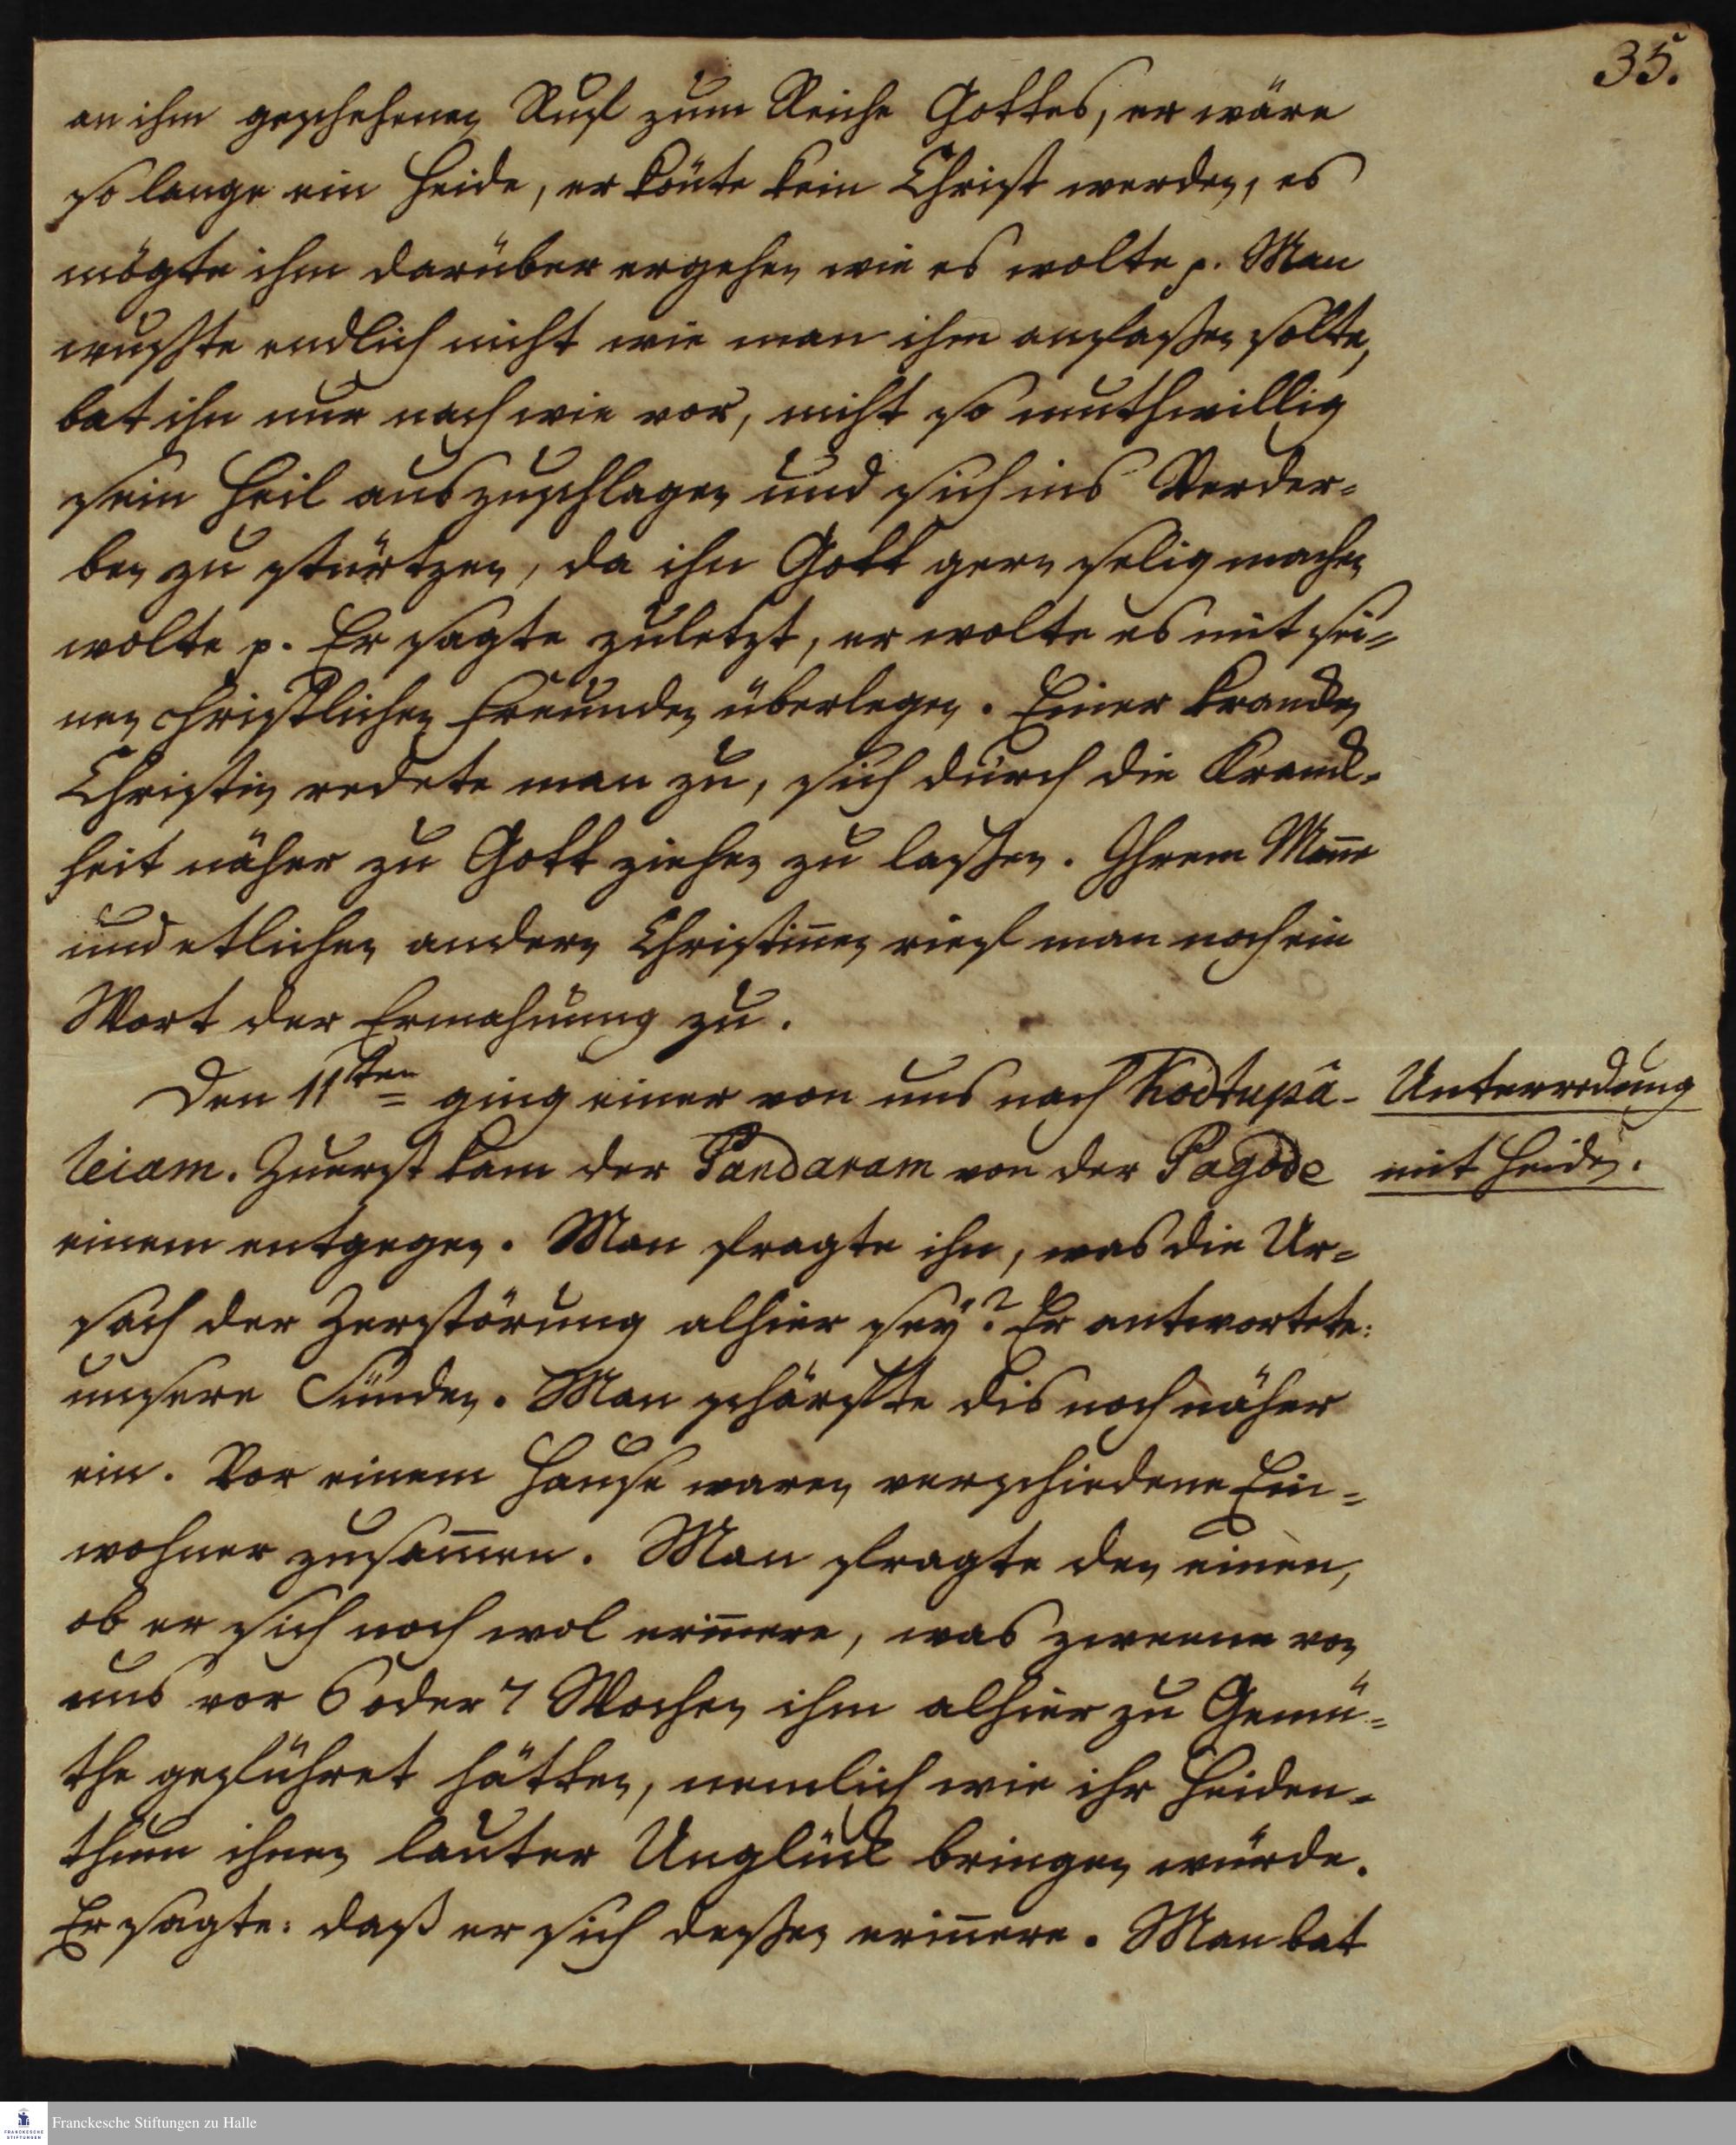 35.
an ihm geschehenen Ruf zum Reiche Gottes, er wäre
so lange ein Heide, er kön̄te kein Christ werden, es
mögte ihm darüber ergehen wie es wolte p. Man
wußte endlich nicht wie man ihn anfaßen solte,
bat ihn nur nach wie vor, nicht so muthwillig
sein Heil auszuschlagen und sich ins Verder=
ben zu stürtzen, da ihn Gott gern selig machen
wolte p. Er sagte zuletzt, er wolte es mit sei=
nen christlichen Freunden überlegen. Einer krancken
Christin redete man zu, sich durch die Kranck=
heit näher zu Gott ziehen zu laßen. Ihrem Man̄e
und etlichen andern Christin̄en rief man noch ein
Wort der Ermahnung zu.
Den 11ten ging einer von uns nach Kodtupâ-
leiam. Zuerst kam der Pandaram von der Pagode
einem entgegen. Man fragte ihn, was die Ur=
sach der Zerstörung alhier sey? Er antwortete:
unsere Sünden. Man schärfte dis noch näher
ein. Vor einem Hause waren verschiedene Ein=
wohner zusam̄en. Man fragte den einen,
ob er sich noch wol erin̄ere, was zweene von
uns vor 6 oder 7 Wochen ihm alhier zu Gemü=
the geführet hätten, nemlich wie ihr Heiden=
thum ihnen lauter Unglück bringen würde.
Er sagte: daß er sich deßen erin̄ere. Man bat
Unterredung
mit Heiden.
Franckesche Stiftungen zu Halle
FRANCKESCHE
STIFTUNGEN